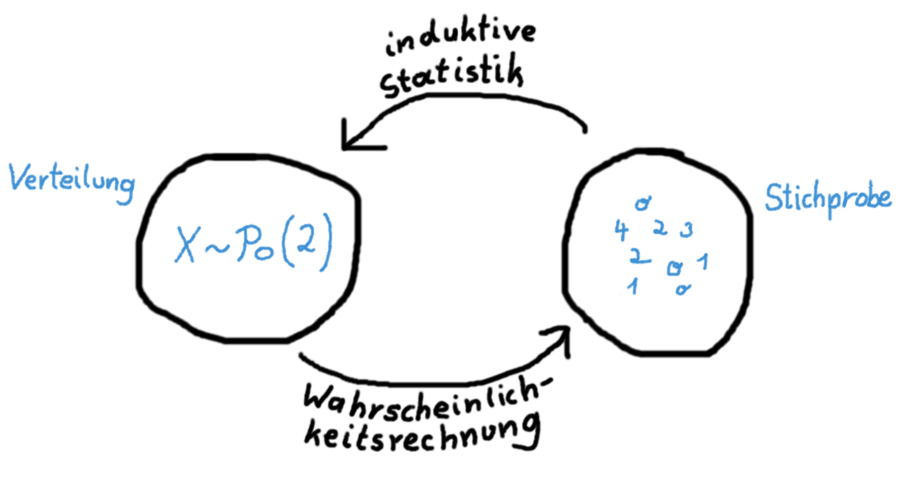 induktive
Statistik
Verteilung
X~Po(2)
Stichprobe
0
4 2 3
2 0 1
1 0
Wahrscheinlich-
keitsrechnung